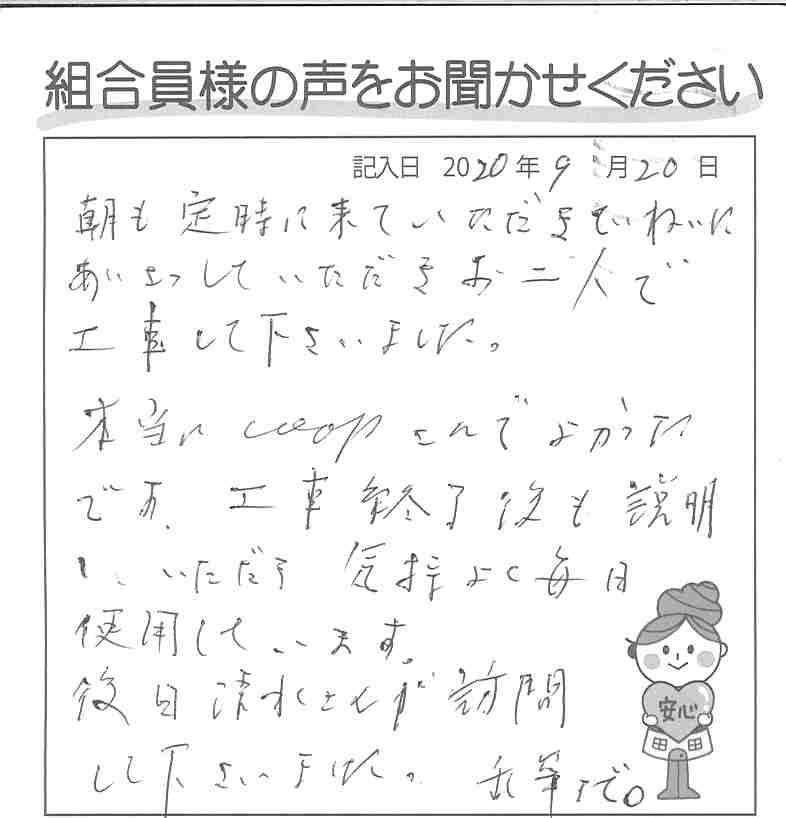 組合員様の声をお聞かせください
記入日 2020年9月20日
朝も定時に来ていただきていねいに
あいさつしていただきお二人で
工事して下さいました。
本当にcoopさんでよかった
です。工事終了後も説明
いただき 気持よく毎日
使用しています。
後日清水さんが訪問
して下さいました。 乱筆で。
安心